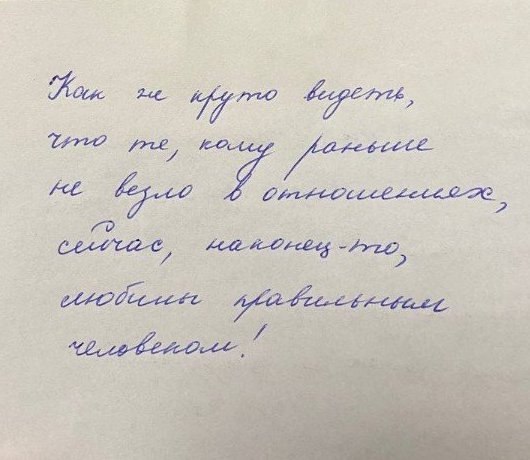 Как же круто видеть,
что те, кому раньше
не везло в отношениях,
сейчас, наконец-то,
любимы правильным
человеком!